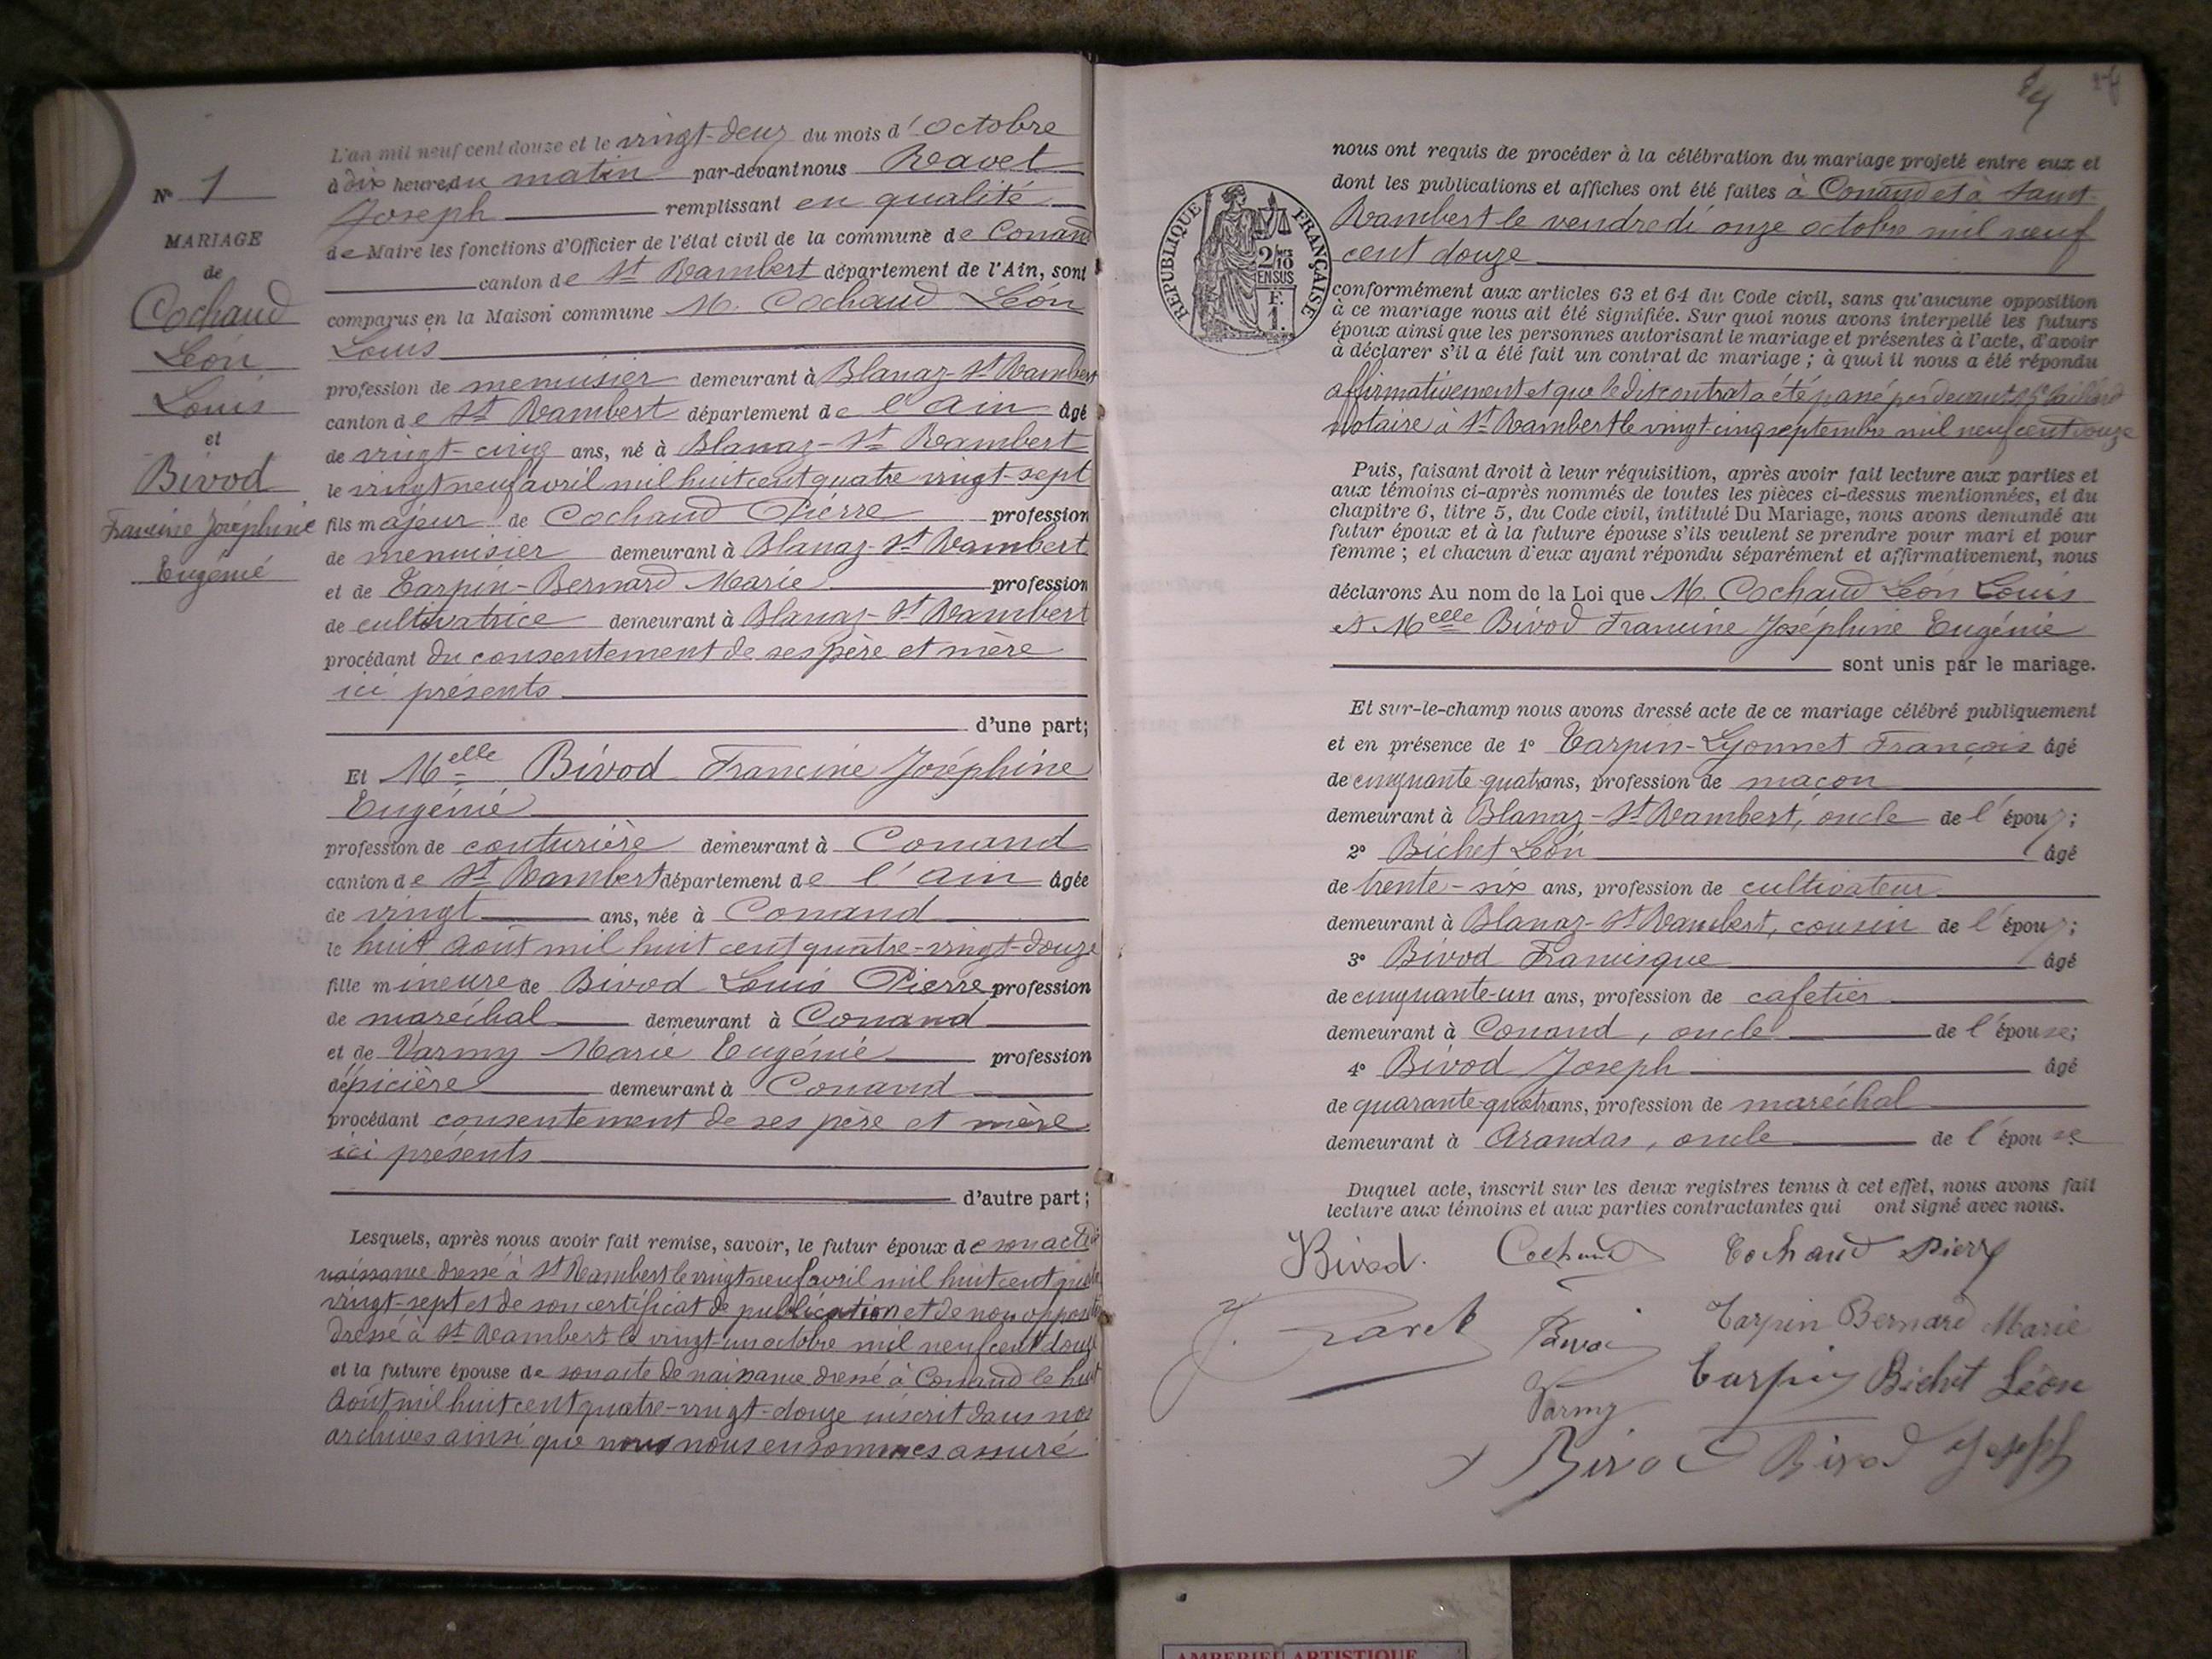 N° 1
MARIAGE
de
Cochaud
Léon
Louis
et
Bivod
Francine Joséphine
Eugénie
L'an mil neuf cent douze et le vingt-deux du mois d'octobre
à dix heures du matin par-devant nous Ravet
Joseph remplissant en qualité
de Maire les fonctions d'Officier de l'état civil de la commune de Conand
canton de St Rambert département de l'Ain, sont
comparus en la Maison commune M. Cochaud Léon
Louis
profession de menuisier demeurant à Blanaz-St Rambert
canton de St Rambert département de l'Ain âgé
de vingt-cinq ans, né à Blanaz-St Rambert
le vingt neuf avril mil huit cent quatre vingt-sept
fils majeur de Cochaud Pierre profession
de menuisier demeurant à Blanaz-St Rambert
et de Tarpin-Bernard Marie profession
de cultivatrice demeurant à Blanaz-St Rambert
procédant du consentement de ses père et mère
ici présents
d'une part;
Et Melle Bivod Francine Joséphine
Eugénie
profession de couturière demeurant à Conand
canton de St Rambert département de l'Ain âgée
de vingt ans, née à Conand
le huit août mil huit cent quatre-vingt-douze
fille mineure de Bivod Louis Pierre profession
de maréchal demeurant à Conand
et de Varmy Marie Eugénie profession
d'épicière demeurant à Conand
procédant consentement de ses père et mère
ici présents
d'autre part;
Lesquels, après nous avoir fait remise, savoir, le futur époux de son acte de
naissance dressé à St Rambert le vingt neuf avril mil huit cent quatre
vingt-sept et de son certificat de publication et de non opposition
dressé à St Rambert le vingt-un octobre mil neuf cent douze
et la future épouse de son acte de naissance dressé à Conand le huit
Août mil huit cent quatre-vingt-douze inscrit dans nos
archives ainsi que nous nous en sommes assuré
RÉPUBLIQUE FRANÇAISE
2/10
EN SUS
F.
1.
nous ont requis de procéder à la célébration du mariage projeté entre eux et
dont les publications et affiches ont été faites à Conand et à Saint-
Rambert le vendredi onze octobre mil neuf
cent douze
conformément aux articles 63 et 64 du Code civil, sans qu'aucune opposition
à ce mariage nous ait été signifiée. Sur quoi nous avons interpellé les futurs
époux ainsi que les personnes autorisant le mariage et présentes à l'acte, d'avoir
à déclarer s'il a été fait un contrat de mariage ; à quoi il nous a été répondu
affirmativement et que le dit contrat a été passé par devant Me
Notaire à St Rambert le vingt cinq septembre mil neuf cent douze
Puis, faisant droit à leur réquisition, après avoir fait lecture aux parties et
aux témoins ci-après nommés de toutes les pièces ci-dessus mentionnées, et du
chapitre 6, titre 5, du Code civil, intitulé Du Mariage, nous avons demandé au
futur époux et à la future épouse s'ils veulent se prendre pour mari et pour
femme ; et chacun d'eux ayant répondu séparément et affirmativement, nous
déclarons Au nom de la Loi que M. Cochaud Léon Louis
et Melle Bivod Francine Joséphine Eugénie
sont unis par le mariage.
Et sur-le-champ nous avons dressé acte de ce mariage célébré publiquement
et en présence de 1° Tarpin-Lyonnet François âgé
de cinquante quatre ans, profession de maçon
demeurant à Blanaz-St Rambert, oncle de l'époux;
2° Bichet Léon âgé
de trente-six ans, profession de cultivateur
demeurant à Blanaz-St Rambert, cousin de l'époux;
3° Bivod Francisque âgé
de cinquante-un ans, profession de cafetier
demeurant à Conand, oncle de l'épouse;
4° Bivod Joseph âgé
de quarante-quatre ans, profession de maréchal
demeurant à Arandas, oncle de l'épouse
Duquel acte, inscrit sur les deux registres tenus à cet effet, nous avons fait
lecture aux témoins et aux parties contractantes qui ont signé avec nous.
Bivod. Cochaud Cochaud Pierre
J. Ravet Tarpin Bernard Marie
Varmy Tarpin Bichet Léon
Bivod Bivod Joseph
AMBERIEU ARTISTIQUE